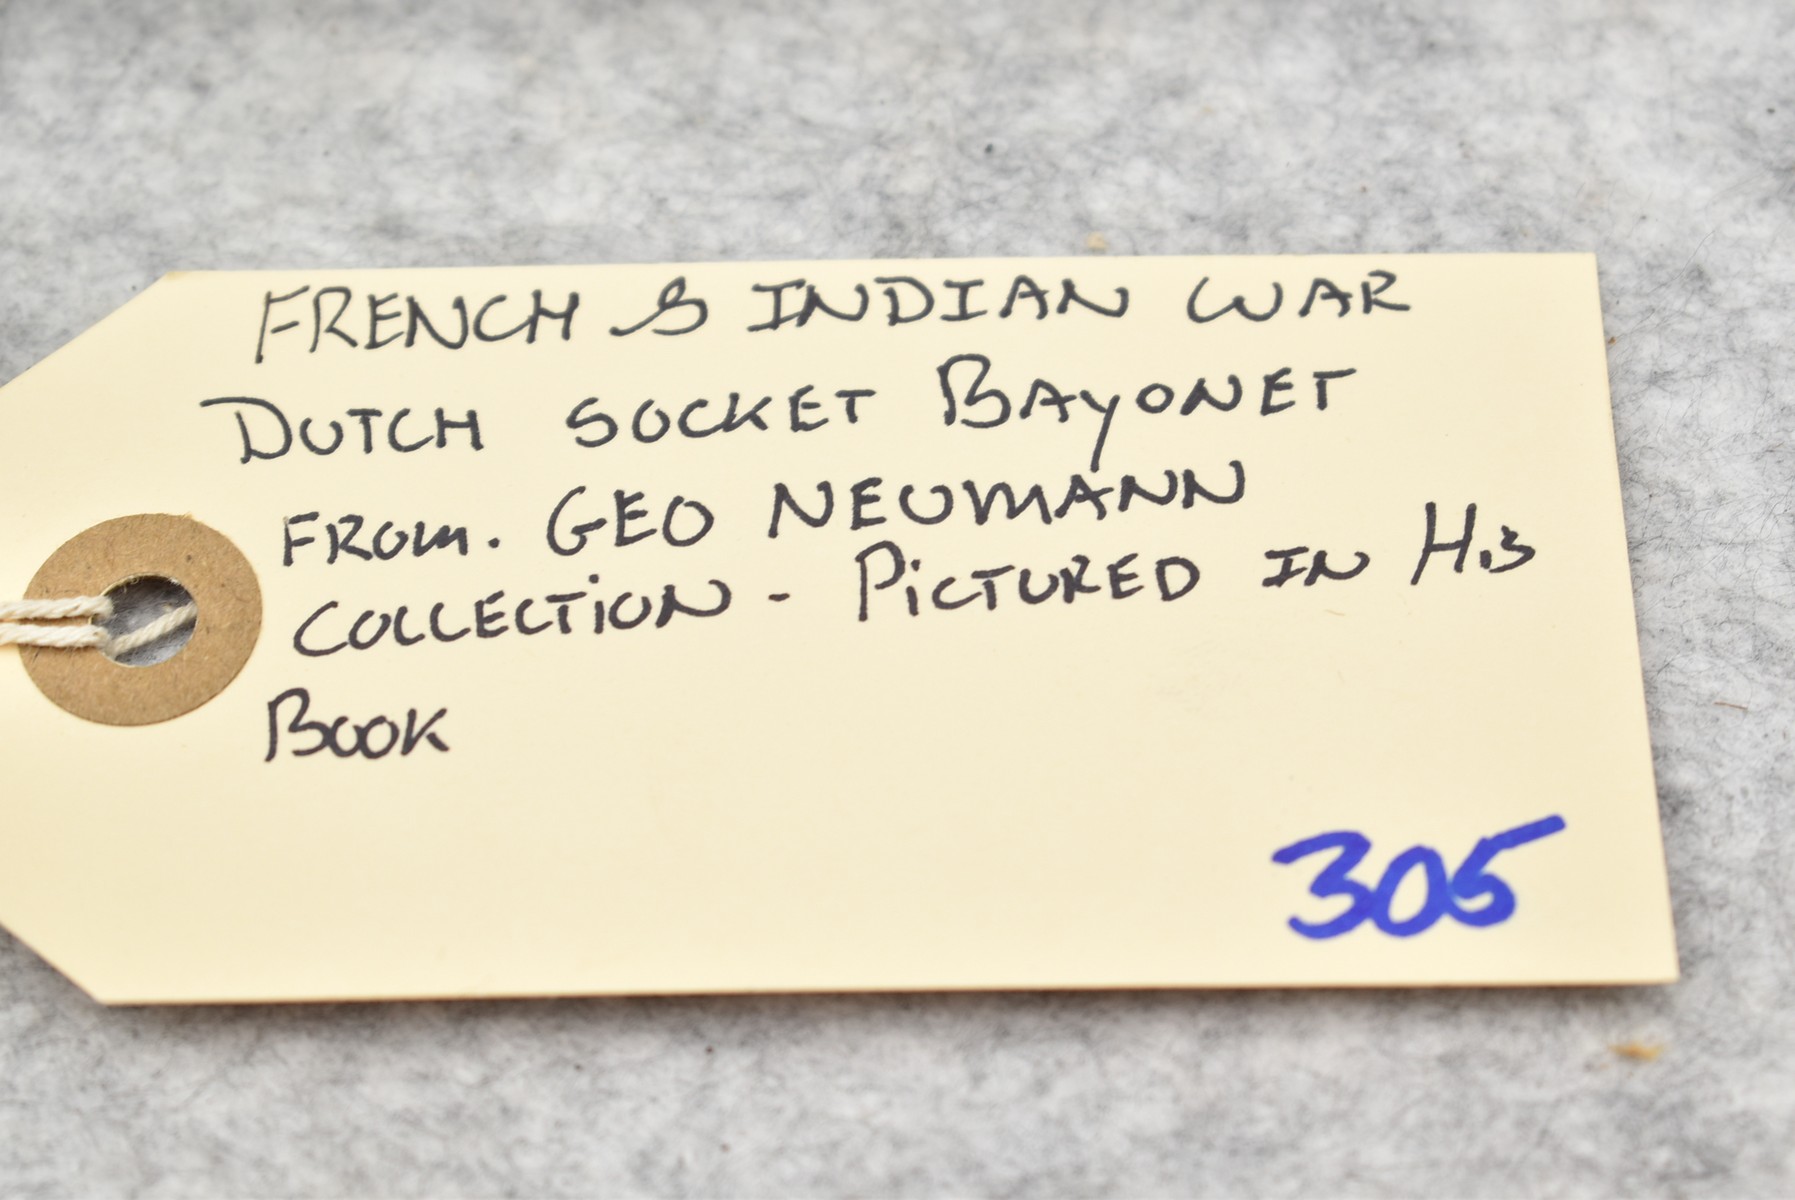 FRENCH & INDIAN WAR
DUTCH SOCKET BAYONET
FROM. GEO NEUMANN
COLLECTION - PICTURED IN HIS
BOOK
305